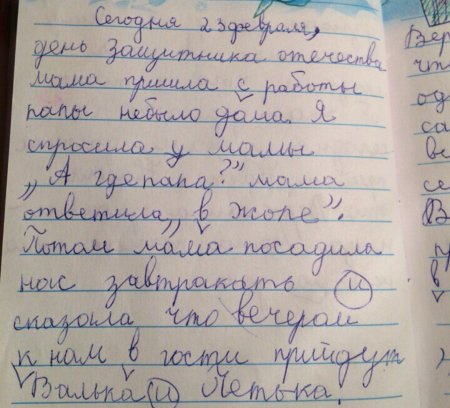 Сегодня 23 февраля,
день защитника отечества
мама пришла с работы
папы небыло дома. Я
спросила у мамы
„А где папа?" мама
ответила „в жопе".
Потом мама посадила
нас завтракать и
сказала, что вечером
к нам в гости прийдут
Валька и Четька.
Вер
что
од
са
ве
се
В
в